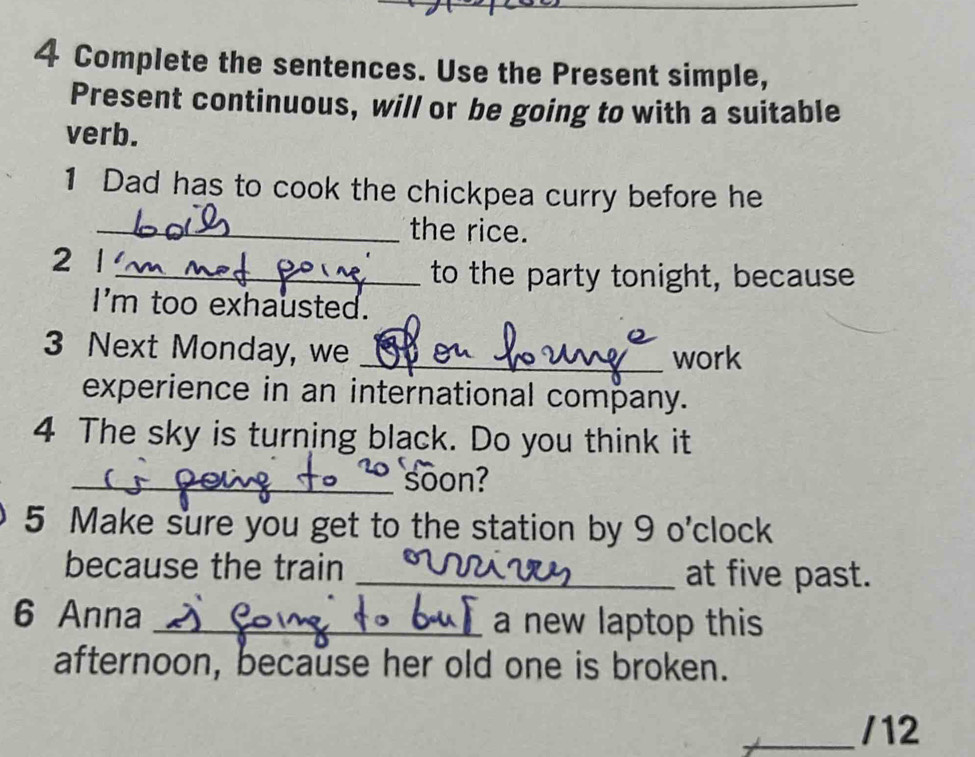 4 Complete the sentences. Use the Present simple,
Present continuous, will or be going to with a suitable
verb.
1 Dad has to cook the chickpea curry before he
boils the rice.
2 I 'm not going to the party tonight, because
I'm too exhausted.
3 Next Monday, we work
experience in an international company.
4 The sky is turning black. Do you think it
is going to soon?
5 Make sure you get to the station by 9 o'clock
because the train arrives at five past.
6 Anna is going to a new laptop this
afternoon, because her old one is broken.
/12